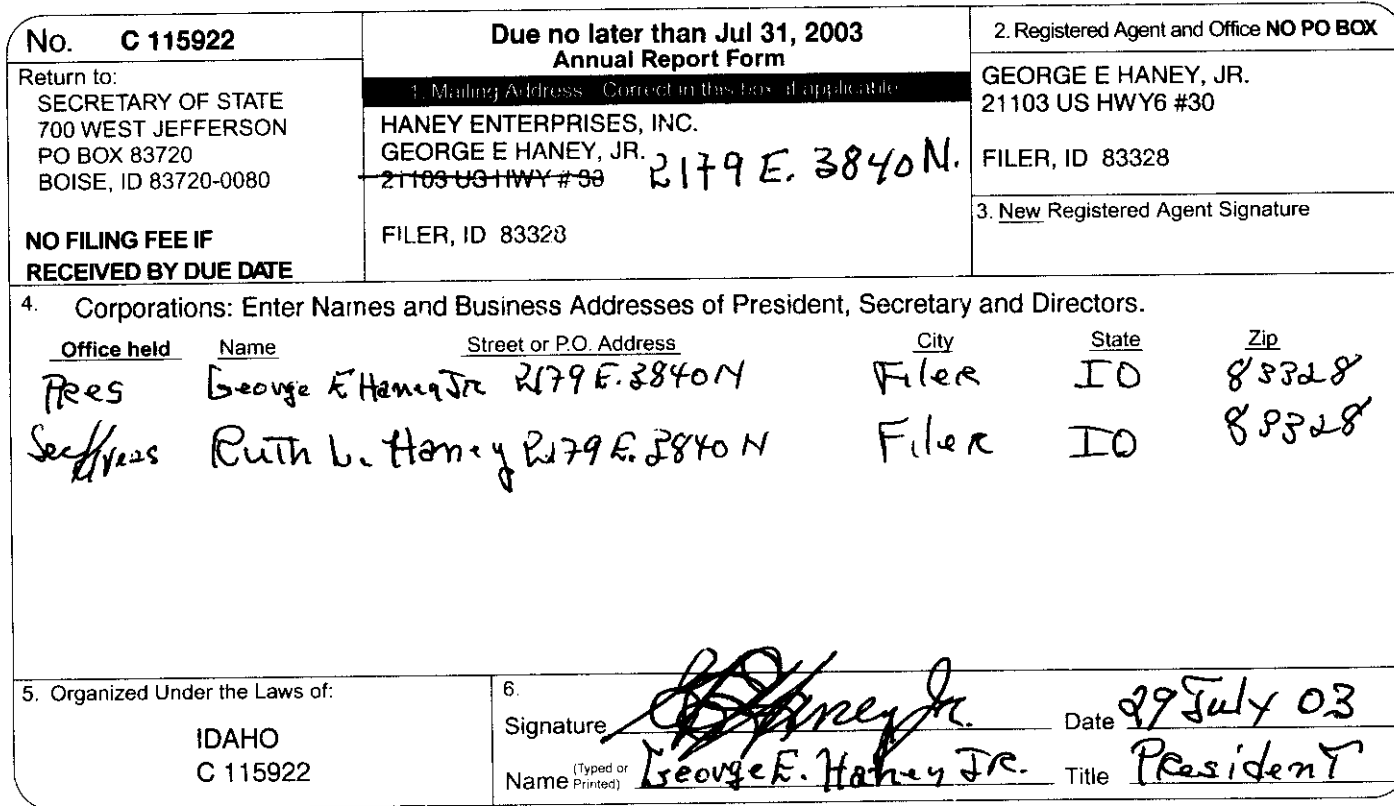 No. C 115922
Return to:
SECRETARY OF STATE
700 WEST JEFFERSON
PO BOX 83720
BOISE, ID 83720-0080
NO FILING FEE IF
RECEIVED BY DUE DATE
Due no later than Jul 31, 2003
Annual Report Form
1. Mailing Address Correct in this box if applicable
HANEY ENTERPRISES, INC.
GEORGE E HANEY, JR.
21103 US HWY # 30 2179 E. 3840 N.
FILER, ID 83328
2. Registered Agent and Office NO PO BOX
GEORGE E HANEY, JR.
21103 US HWY6 #30
FILER, ID 83328
3. New Registered Agent Signature
4. Corporations: Enter Names and Business Addresses of President, Secretary and Directors.
Office held Name Street or P.O. Address City State Zip
Pres George E Haney Jr 2179 E. 3840 N Filer ID 83328
Sec/Treas Ruth L. Haney 2179 E. 3840 N Filer ID 83328
5. Organized Under the Laws of:
IDAHO
C 115922
6.
Signature Haney Jr. Date 29 July 03
Name (Typed or Printed) George E. Haney JR. Title President